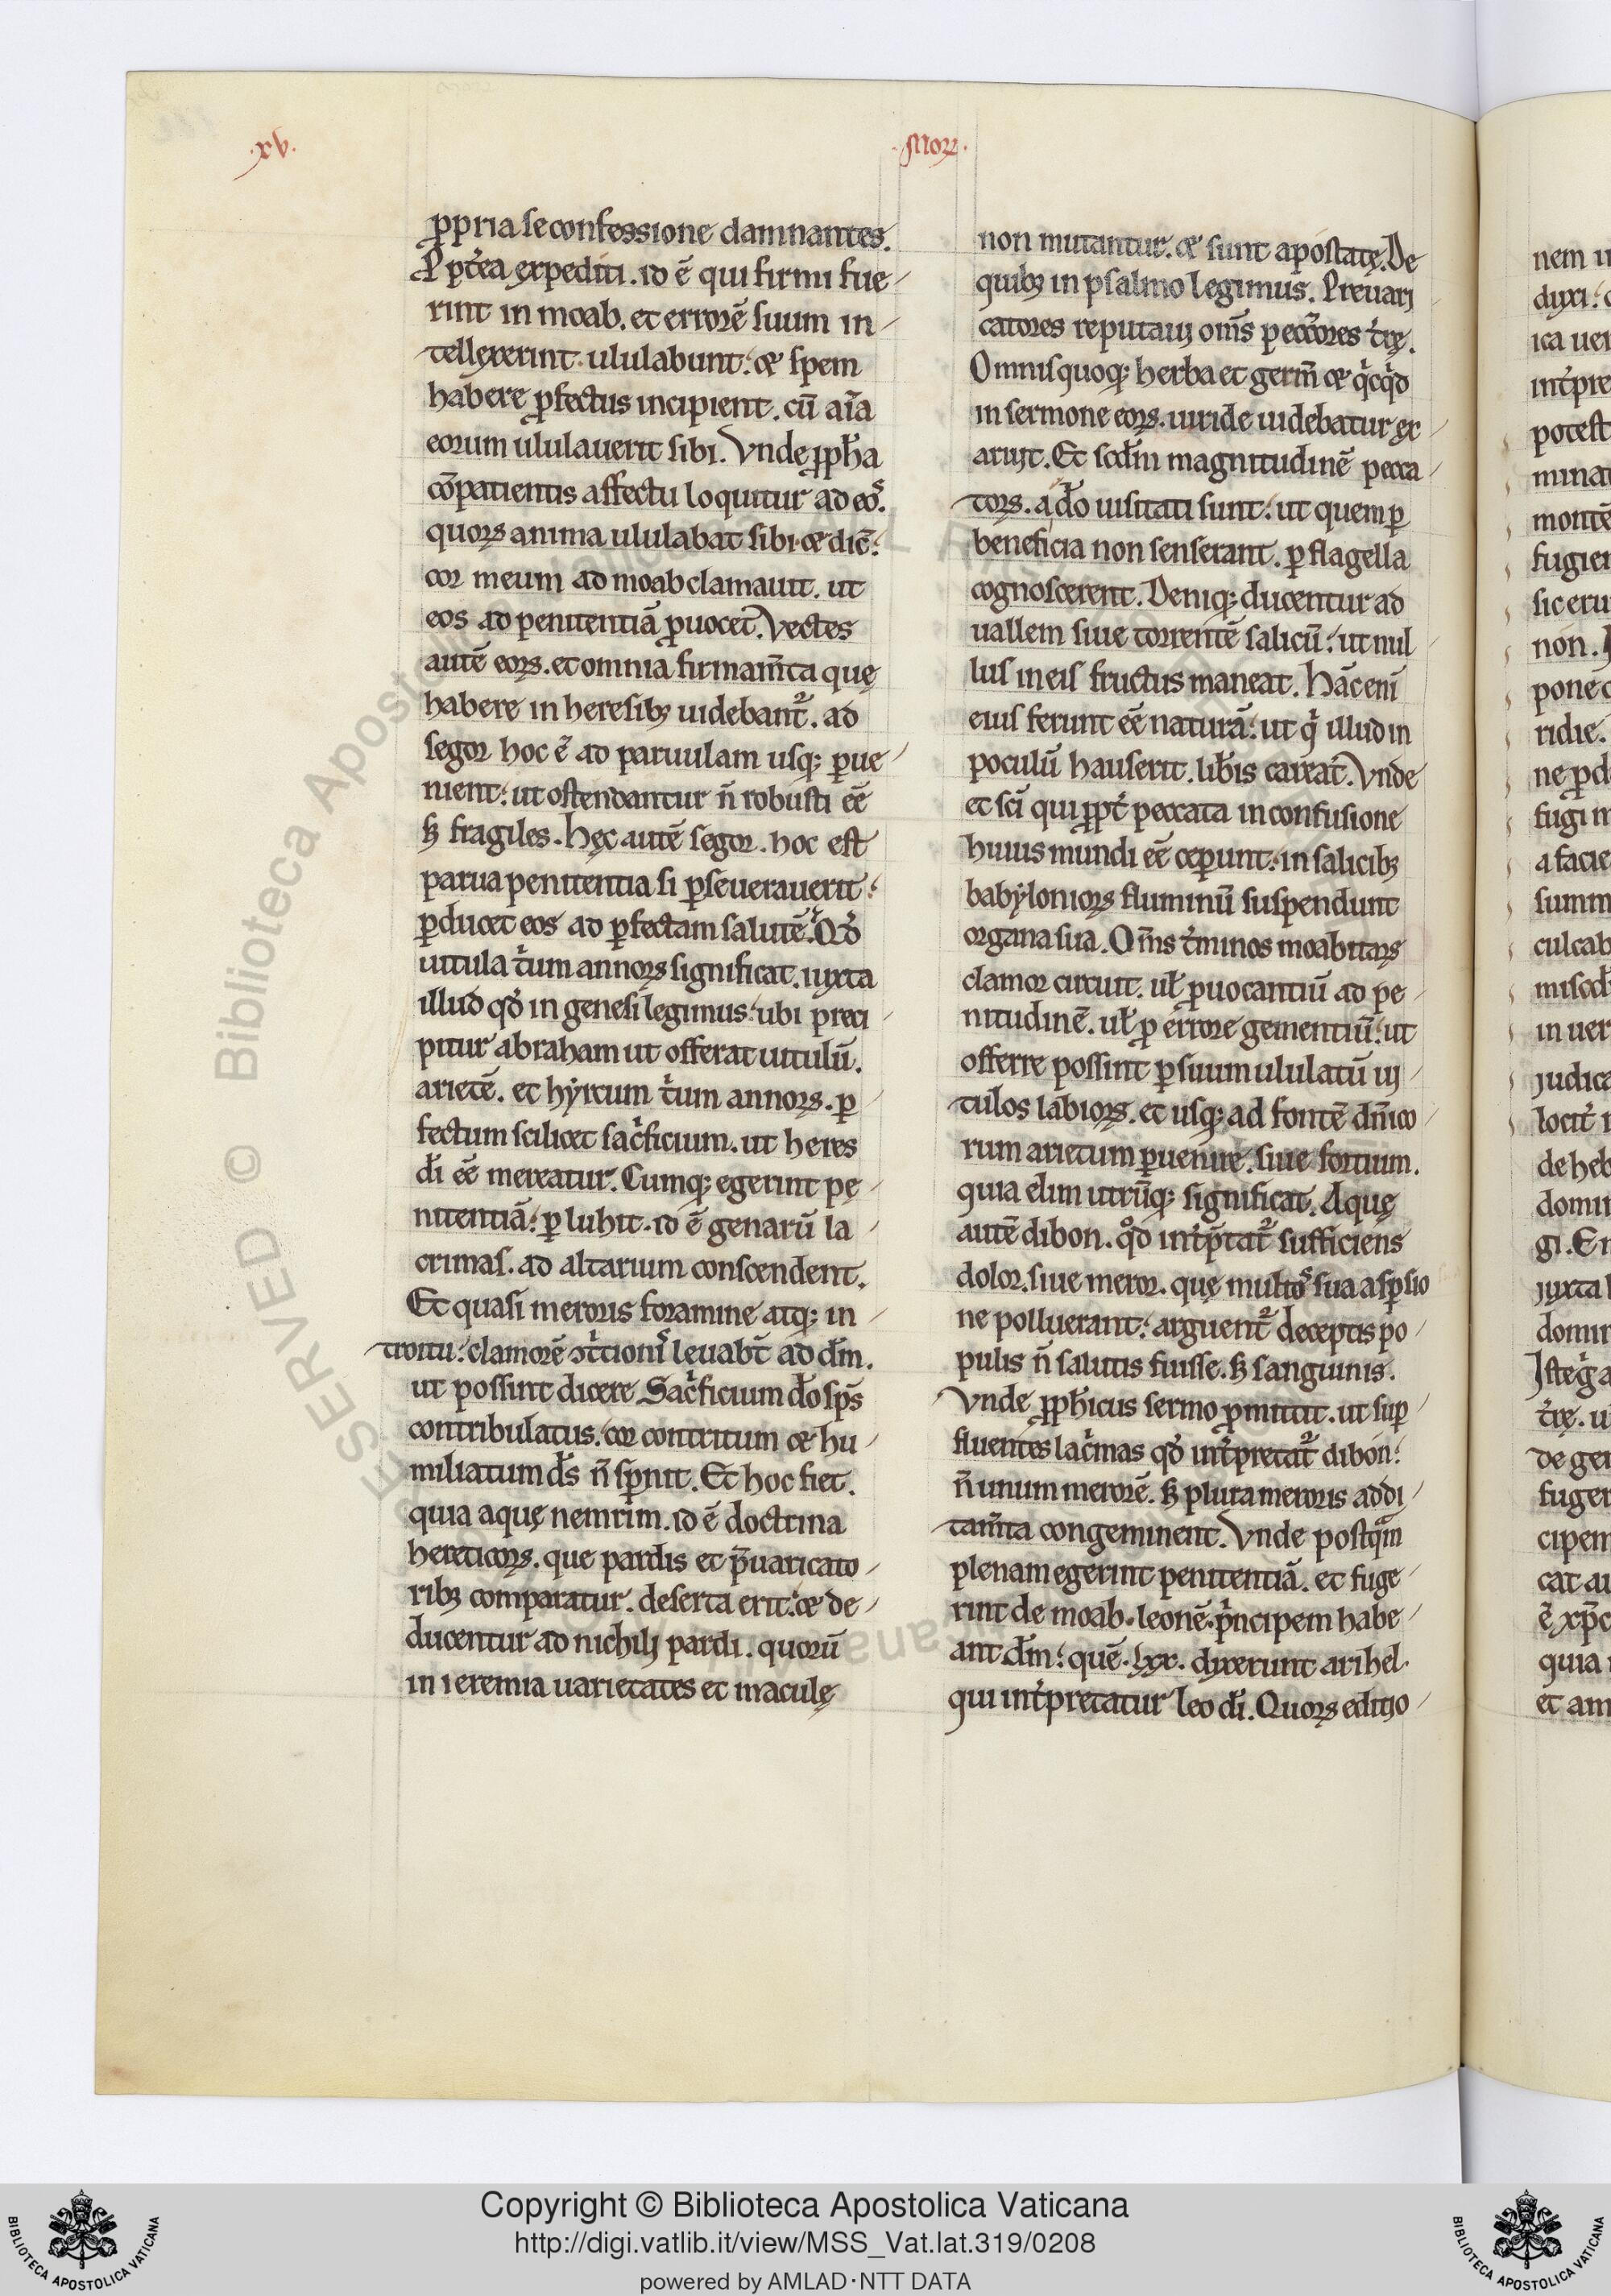 ·xv·
·Morr·
ꝓpria se confessione damnantes.
Ppt̉ea expediti. id ē qui firmi fue
rint in moab. et errorē suum in
tellexerint ululabunt: & spem
habere ꝓfectus incipient. cū aīa
eorum ululauerit sibi. Vnde ꝓpħa
cōpatientis affectu loquitur ad eoˢ.
quoꝝ anima ululabat sibi & dic̄:
cor meum ad moab clamauit. ut
eos ad penitentiā ꝓuocet. Vectes
autē eoꝝ. et omnia firmam̄ta quę
habere in heresibꝫ uidebant᷑. ad
segor hoc ē ad paruulam usqꝫ ꝑue
nient: ut ostendantur n̄ robusti eē
sꝫ fragiles. Hęc autē segor. hoc est
parua penitentia si ꝑseuerauerit:
ꝑducet eos ad ꝑfectam salutē. Qd̉
uitula t̉um annoꝝ significat. iuxta
illud qd̉ in genesi legimus: ubi preci
pitur abraham ut offerat uitulū.
arietē. et hyrcum t̉um annoꝝ. ꝑ
fectum scilicet sac̉ficium. ut heres
di̅ eē mereatur. Cumqꝫ egerint pę
nitentiā: ꝑ luhit. id ē genarū la
crimas. ad altarium conscendent.
Et quasi meroris foramine atqꝫ in
troitu: clamorē ꝯt̉tionıˢ leuabt̄ ad dm̅.
ut possint dicere Sac̉ficium do̅ sps̄
contribulatus: cor contritum & hu
miliatum ds̄ n̄ spnit. Et hoc fiet.
quia aquę nemrim. id ē doctrina
hereticoꝝ. que pardis et p̄uaricato
ribꝫ comparatur. deserta erit: & de
ducentur ad nichilj pardi. quorū
in ieremia uarietates et maculę
non mutantur. & sunt apostatę. De
quibꝫ in psalmo legimus. Preuari
catores reputauj om̄s peccc̄ores t̉rę.
Omnis quoqꝫ herba et germ̄ & q̉cq̉d
in sermone eoꝝ. uiride uidebatur ex
arujt. Et scdm̅ magnitudinē pecca
toꝝ. a do̅ uisitati sunt: ut quem ꝑ
beneficia non senserant. ꝑ flagella
cognoscerent. Deniqꝫ ducentur ad
uallem siue torrentē salicū: ut nul
lus in eis fructus maneat. Hāc enī
eius ferunt eē naturā: ut q̉ illud in
poculū hauserit. lib̅is careat. Vnde
et sc̄i qui ꝓpt̉ peccata in confusione
huius mundi eē ceꝑunt: in salicibꝫ
babylonioꝝ fluminū suspendunt
organa sua. Om̄s t̉minos moabitaꝝ
clamor circuit. uł ꝓuocantiū ad pe
nitudinē. uł ꝓ errore gementiū: ut
offerre possint ꝑ suum ululatū uj
tulos labioꝝ. et usqꝫ ad fontē dn̄ico
rum arietum ꝑuenire. siue fortium.
quia elim utrūqꝫ significat. Aquę
autē dibon. qd̊ int̉p̄tat᷑ sufficiens
dolor. siue meror. quę multoˢ sua aspsio
ne polluerant: arguent᷑ deceptis po
pulis n̄ salutis fuisse. sꝫ sanguinis.
Vnde ꝓpħicus sermo ꝓmittit. ut suꝑ
fluentes lac̉mas qd̉ int̉pretat᷑ dibon:
n̄ unum merorē. sꝫ plura meroris addi
tam̄ta congeminent. Vnde postqᵃm
plenam egerint penitentiā. et fuge
rint de moab. leonē p̉ncipem habe
ant dm̅: quē .lxx. dixerunt arihel.
qui int̉pretatur leo di̅. Quoꝝ editio
Copyright © Biblioteca Apostolica Vaticana
http://digi.vatlib.it/view/MSS_Vat.lat.319/0208
powered by AMLAD·NTT DATA